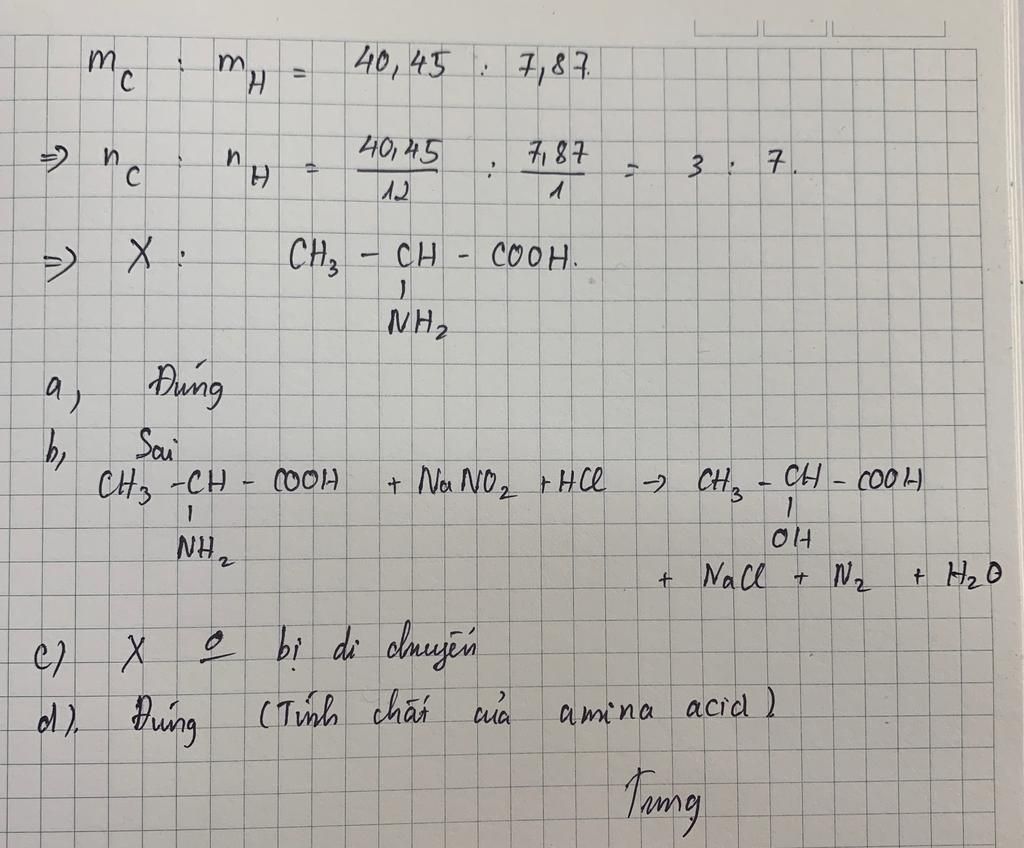 m_C : m_H = 40,45 : 7,87.
=> n_C : n_H = 40,45/12 : 7,87/1 = 3 : 7.
=> X : CH₃ - CH - COOH.
NH₂
a, Đúng
b, Sai
CH₃ - CH - COOH + NaNO₂ + HCl → CH₃ - CH - COOH
NH₂ OH
+ NaCl + N₂ + H₂O
c) X o bị di chuyển
d). Đúng (Tính chất của amina acid)
Trung